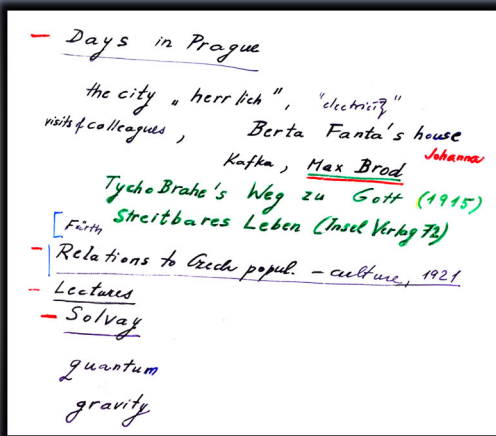 – Days in Prague
the city „herrlich", "electricity"
visits of colleagues, Berta Fanta's house
Kafka, Max Brod Johanna
Tycho Brahe's Weg zu Gott (1915)
[Fürth Streitbares Leben (Insel Verlag 72)
– Relations to Czech popul. – culture, 1921
– Lectures
– Solvay
quantum
gravity